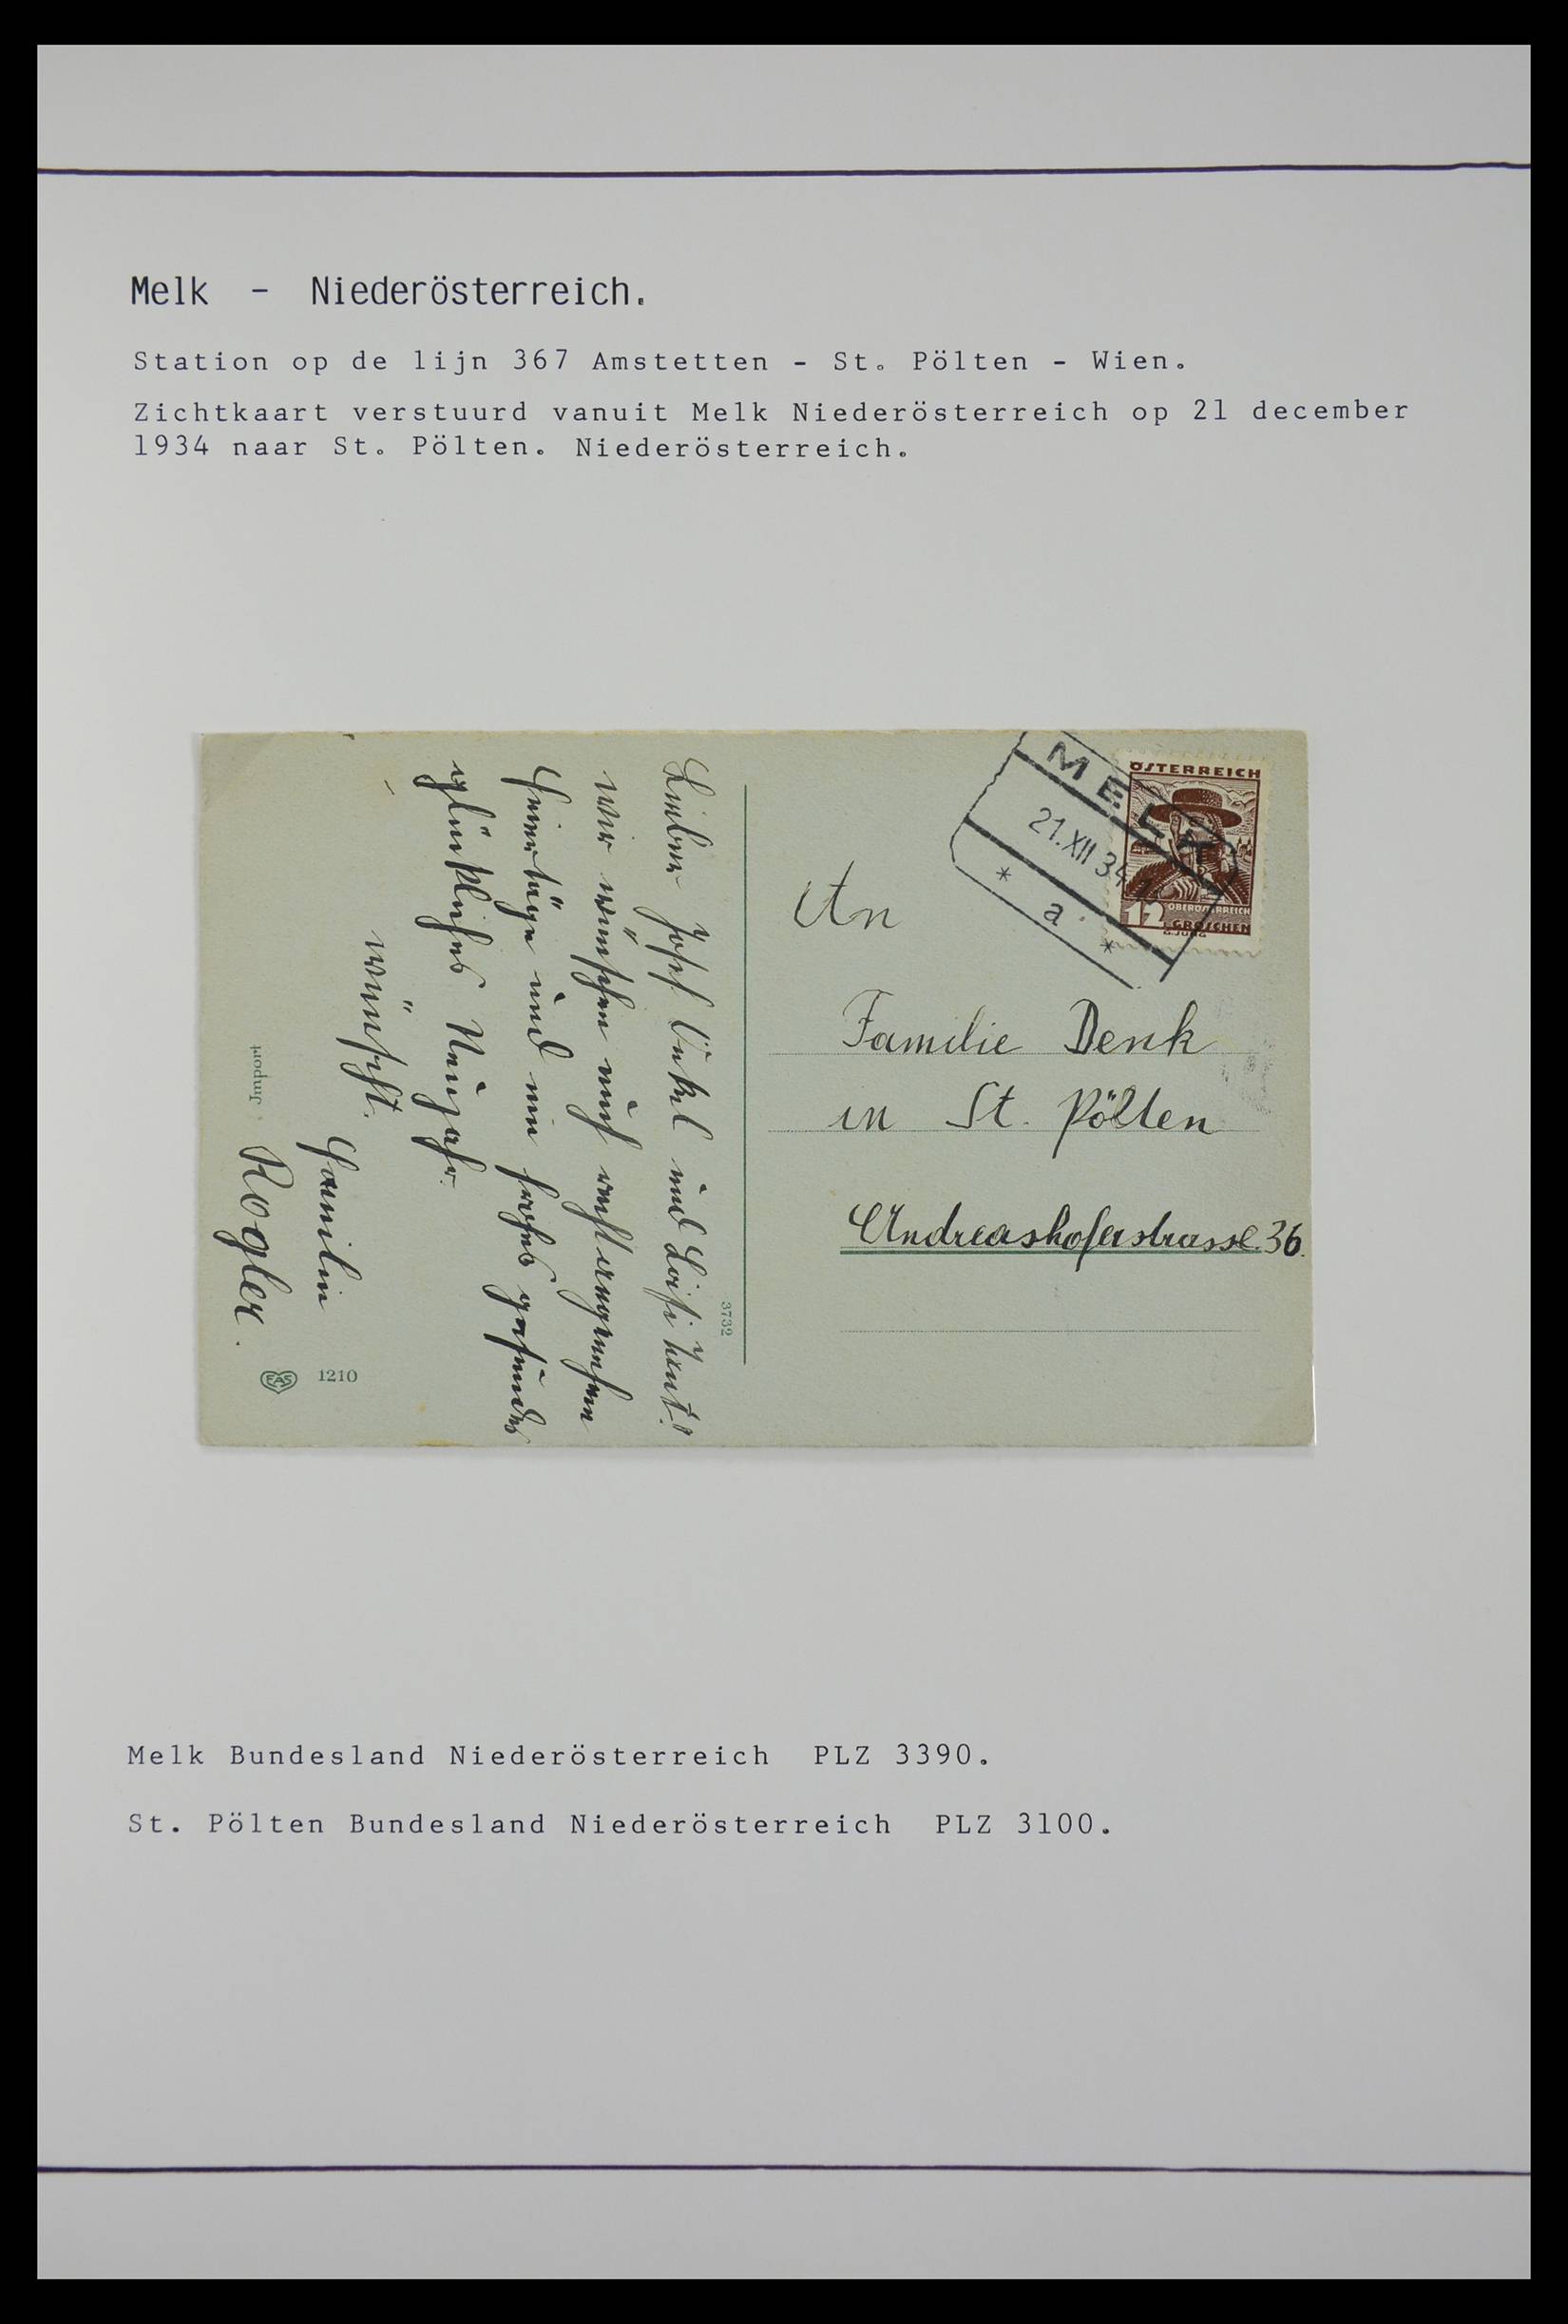 Melk - Niederösterreich.
Station op de lijn 367 Amstetten - St. Pölten - Wien.
Zichtkaart verstuurd vanuit Melk Niederösterreich op 21 december
1934 naar St. Pölten. Niederösterreich.
MELK
21.XII 34
* a *
ÖSTERREICH
12
OBERÖSTERREICH
GROSCHEN
An
Familie Denk
in St. Pölten
Andreashoferstrasse. 36.
3732
Lieber Josef Onkel und
wir wünschen euch recht angenehme
Feiertage und ein frohes gesundes
glückliches Neujahr.
wünscht.
Familie
Rogler.
Import
EAS 1210
Melk Bundesland Niederösterreich PLZ 3390.
St. Pölten Bundesland Niederösterreich PLZ 3100.